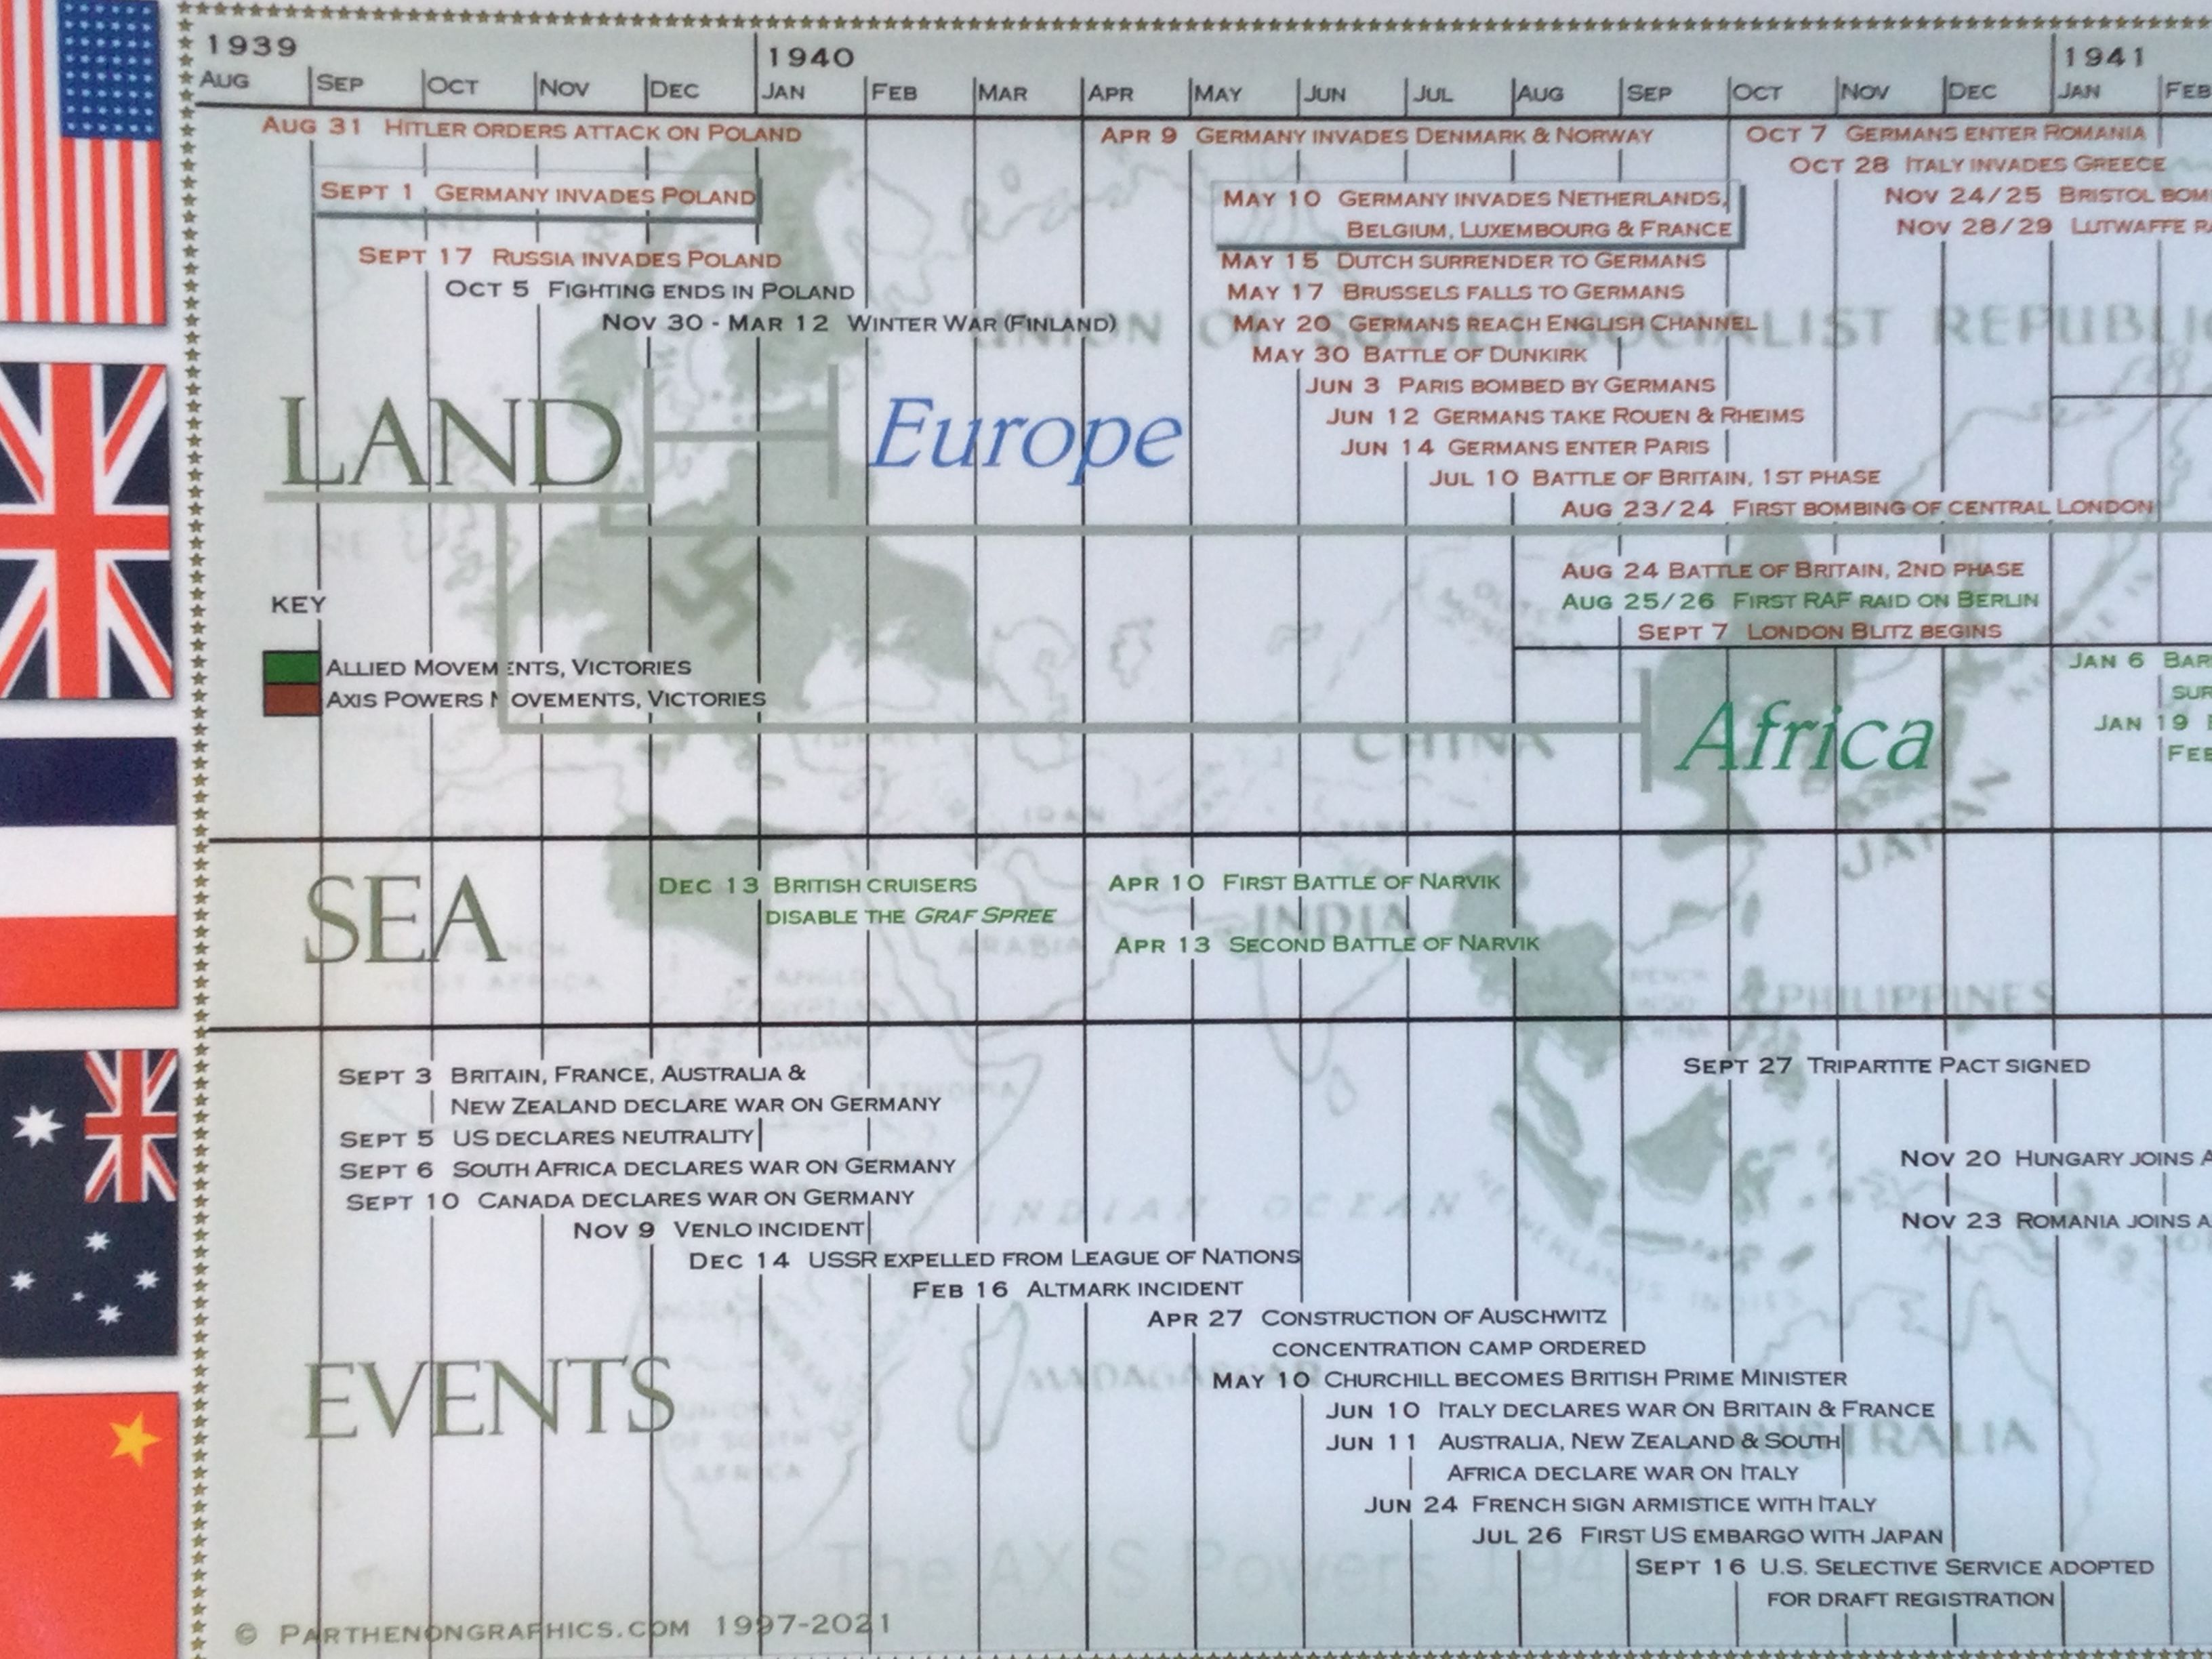 1939
1940
1941
AUG SEP OCT NOV DEC JAN FEB MAR APR MAY JUN JUL AUG SEP OCT NOV DEC JAN FEB
AUG 31 HITLER ORDERS ATTACK ON POLAND
SEPT 1 GERMANY INVADES POLAND
SEPT 17 RUSSIA INVADES POLAND
OCT 5 FIGHTING ENDS IN POLAND
NOV 30 - MAR 12 WINTER WAR (FINLAND)
APR 9 GERMANY INVADES DENMARK & NORWAY
MAY 10 GERMANY INVADES NETHERLANDS,
BELGIUM, LUXEMBOURG & FRANCE
MAY 15 DUTCH SURRENDER TO GERMANS
MAY 17 BRUSSELS FALLS TO GERMANS
MAY 20 GERMANS REACH ENGLISH CHANNEL
MAY 30 BATTLE OF DUNKIRK
JUN 3 PARIS BOMBED BY GERMANS
JUN 12 GERMANS TAKE ROUEN & RHEIMS
JUN 14 GERMANS ENTER PARIS
JUL 10 BATTLE OF BRITAIN, 1ST PHASE
AUG 23/24 FIRST BOMBING OF CENTRAL LONDON
OCT 7 GERMANS ENTER ROMANIA
OCT 28 ITALY INVADES GREECE
NOV 24/25 BRISTOL
NOV 28/29 LUTWAFFE
UNION OF SOVIET SOCIALIST
LAND
Europe
AUG 24 BATTLE OF BRITAIN, 2ND PHASE
AUG 25/26 FIRST RAF RAID ON BERLIN
SEPT 7 LONDON BLITZ BEGINS
KEY
ALLIED MOVEMENTS, VICTORIES
AXIS POWERS MOVEMENTS, VICTORIES
Africa
JAN 6
JAN 19
FEB
CHINA
JAPAN
IRAN
SEA
DEC 13 BRITISH CRUISERS
DISABLE THE GRAF SPREE
APR 10 FIRST BATTLE OF NARVIK
APR 13 SECOND BATTLE OF NARVIK
INDIA
ARABIA
PHILIPPINES
SEPT 3 BRITAIN, FRANCE, AUSTRALIA &
NEW ZEALAND DECLARE WAR ON GERMANY
SEPT 5 US DECLARES NEUTRALITY
SEPT 6 SOUTH AFRICA DECLARES WAR ON GERMANY
SEPT 10 CANADA DECLARES WAR ON GERMANY
NOV 9 VENLO INCIDENT
DEC 14 USSR EXPELLED FROM LEAGUE OF NATIONS
FEB 16 ALTMARK INCIDENT
APR 27 CONSTRUCTION OF AUSCHWITZ
CONCENTRATION CAMP ORDERED
MAY 10 CHURCHILL BECOMES BRITISH PRIME MINISTER
JUN 10 ITALY DECLARES WAR ON BRITAIN & FRANCE
JUN 11 AUSTRALIA, NEW ZEALAND & SOUTH
AFRICA DECLARE WAR ON ITALY
JUN 24 FRENCH SIGN ARMISTICE WITH ITALY
JUL 26 FIRST US EMBARGO WITH JAPAN
SEPT 16 U.S. SELECTIVE SERVICE ADOPTED
FOR DRAFT REGISTRATION
SEPT 27 TRIPARTITE PACT SIGNED
NOV 20 HUNGARY JOINS
NOV 23 ROMANIA JOINS
INDIAN OCEAN
MADAGASCAR
AUSTRALIA
UNION
OF SOUTH
AFRICA
EVENTS
The AXIS Powers
© PARTHENONGRAPHICS.COM 1997-2021